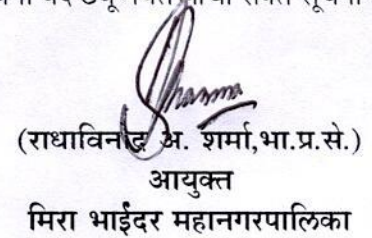 (राधाविनोद अ. शर्मा,भा.प्र.से.)
आयुक्त
मिरा भाईंदर महानगरपालिका